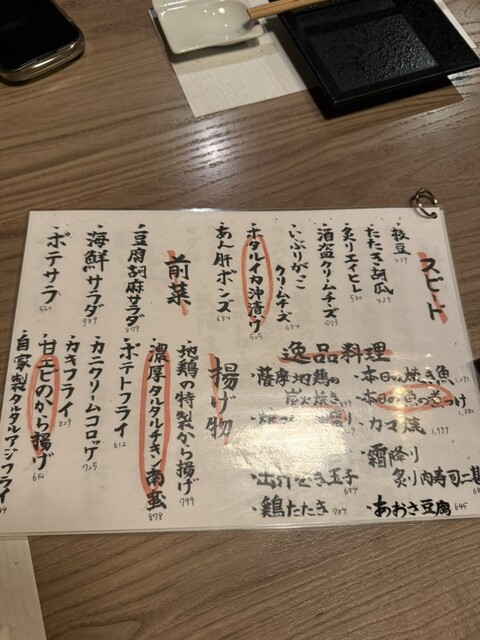 スピード
・枝豆 429
・たたき胡瓜 429
・炙りエイヒレ 580
・酒盗クリームチーズ 579
・いぶりがっこ
クリームチーズ 684
・ホタルイカ沖漬け 525
・あん肝ポンズ 684
前菜
・豆腐胡麻サラダ 879
・海鮮サラダ 989
・ポテサラ 560
逸品料理
・本日の焼き魚
・本日の魚の煮つけ
・カマ焼
・霜降り
炙り肉寿司二
・あおさ豆腐 645
・薩摩地鶏の
炭火焼き
・出汁まき玉子 684
・鶏たたき
揚げ物
・地鶏の特製から揚げ 799
・濃厚タルタルチキン南蛮 878
・ポテトフライ 612
・カニクリームコロッケ 725
・カキフライ 829
・甘エビのから揚げ 690
・自家製タルタルアジフライ